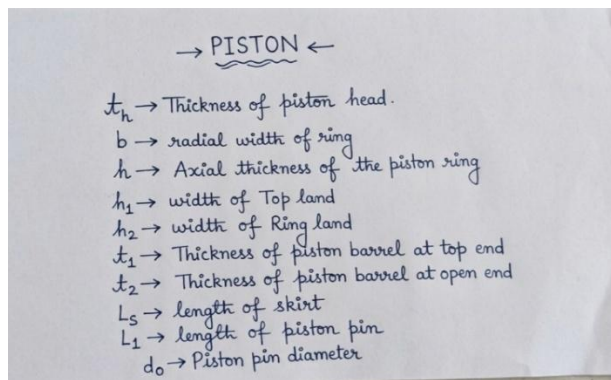 → PISTON ←
t_h → Thickness of piston head.
b → radial width of ring
h → Axial thickness of the piston ring
h₁ → width of Top land
h₂ → width of Ring land
t₁ → Thickness of piston barrel at top end
t₂ → Thickness of piston barrel at open end
L_s → length of skirt
L₁ → length of piston pin
d₀ → Piston pin diameter